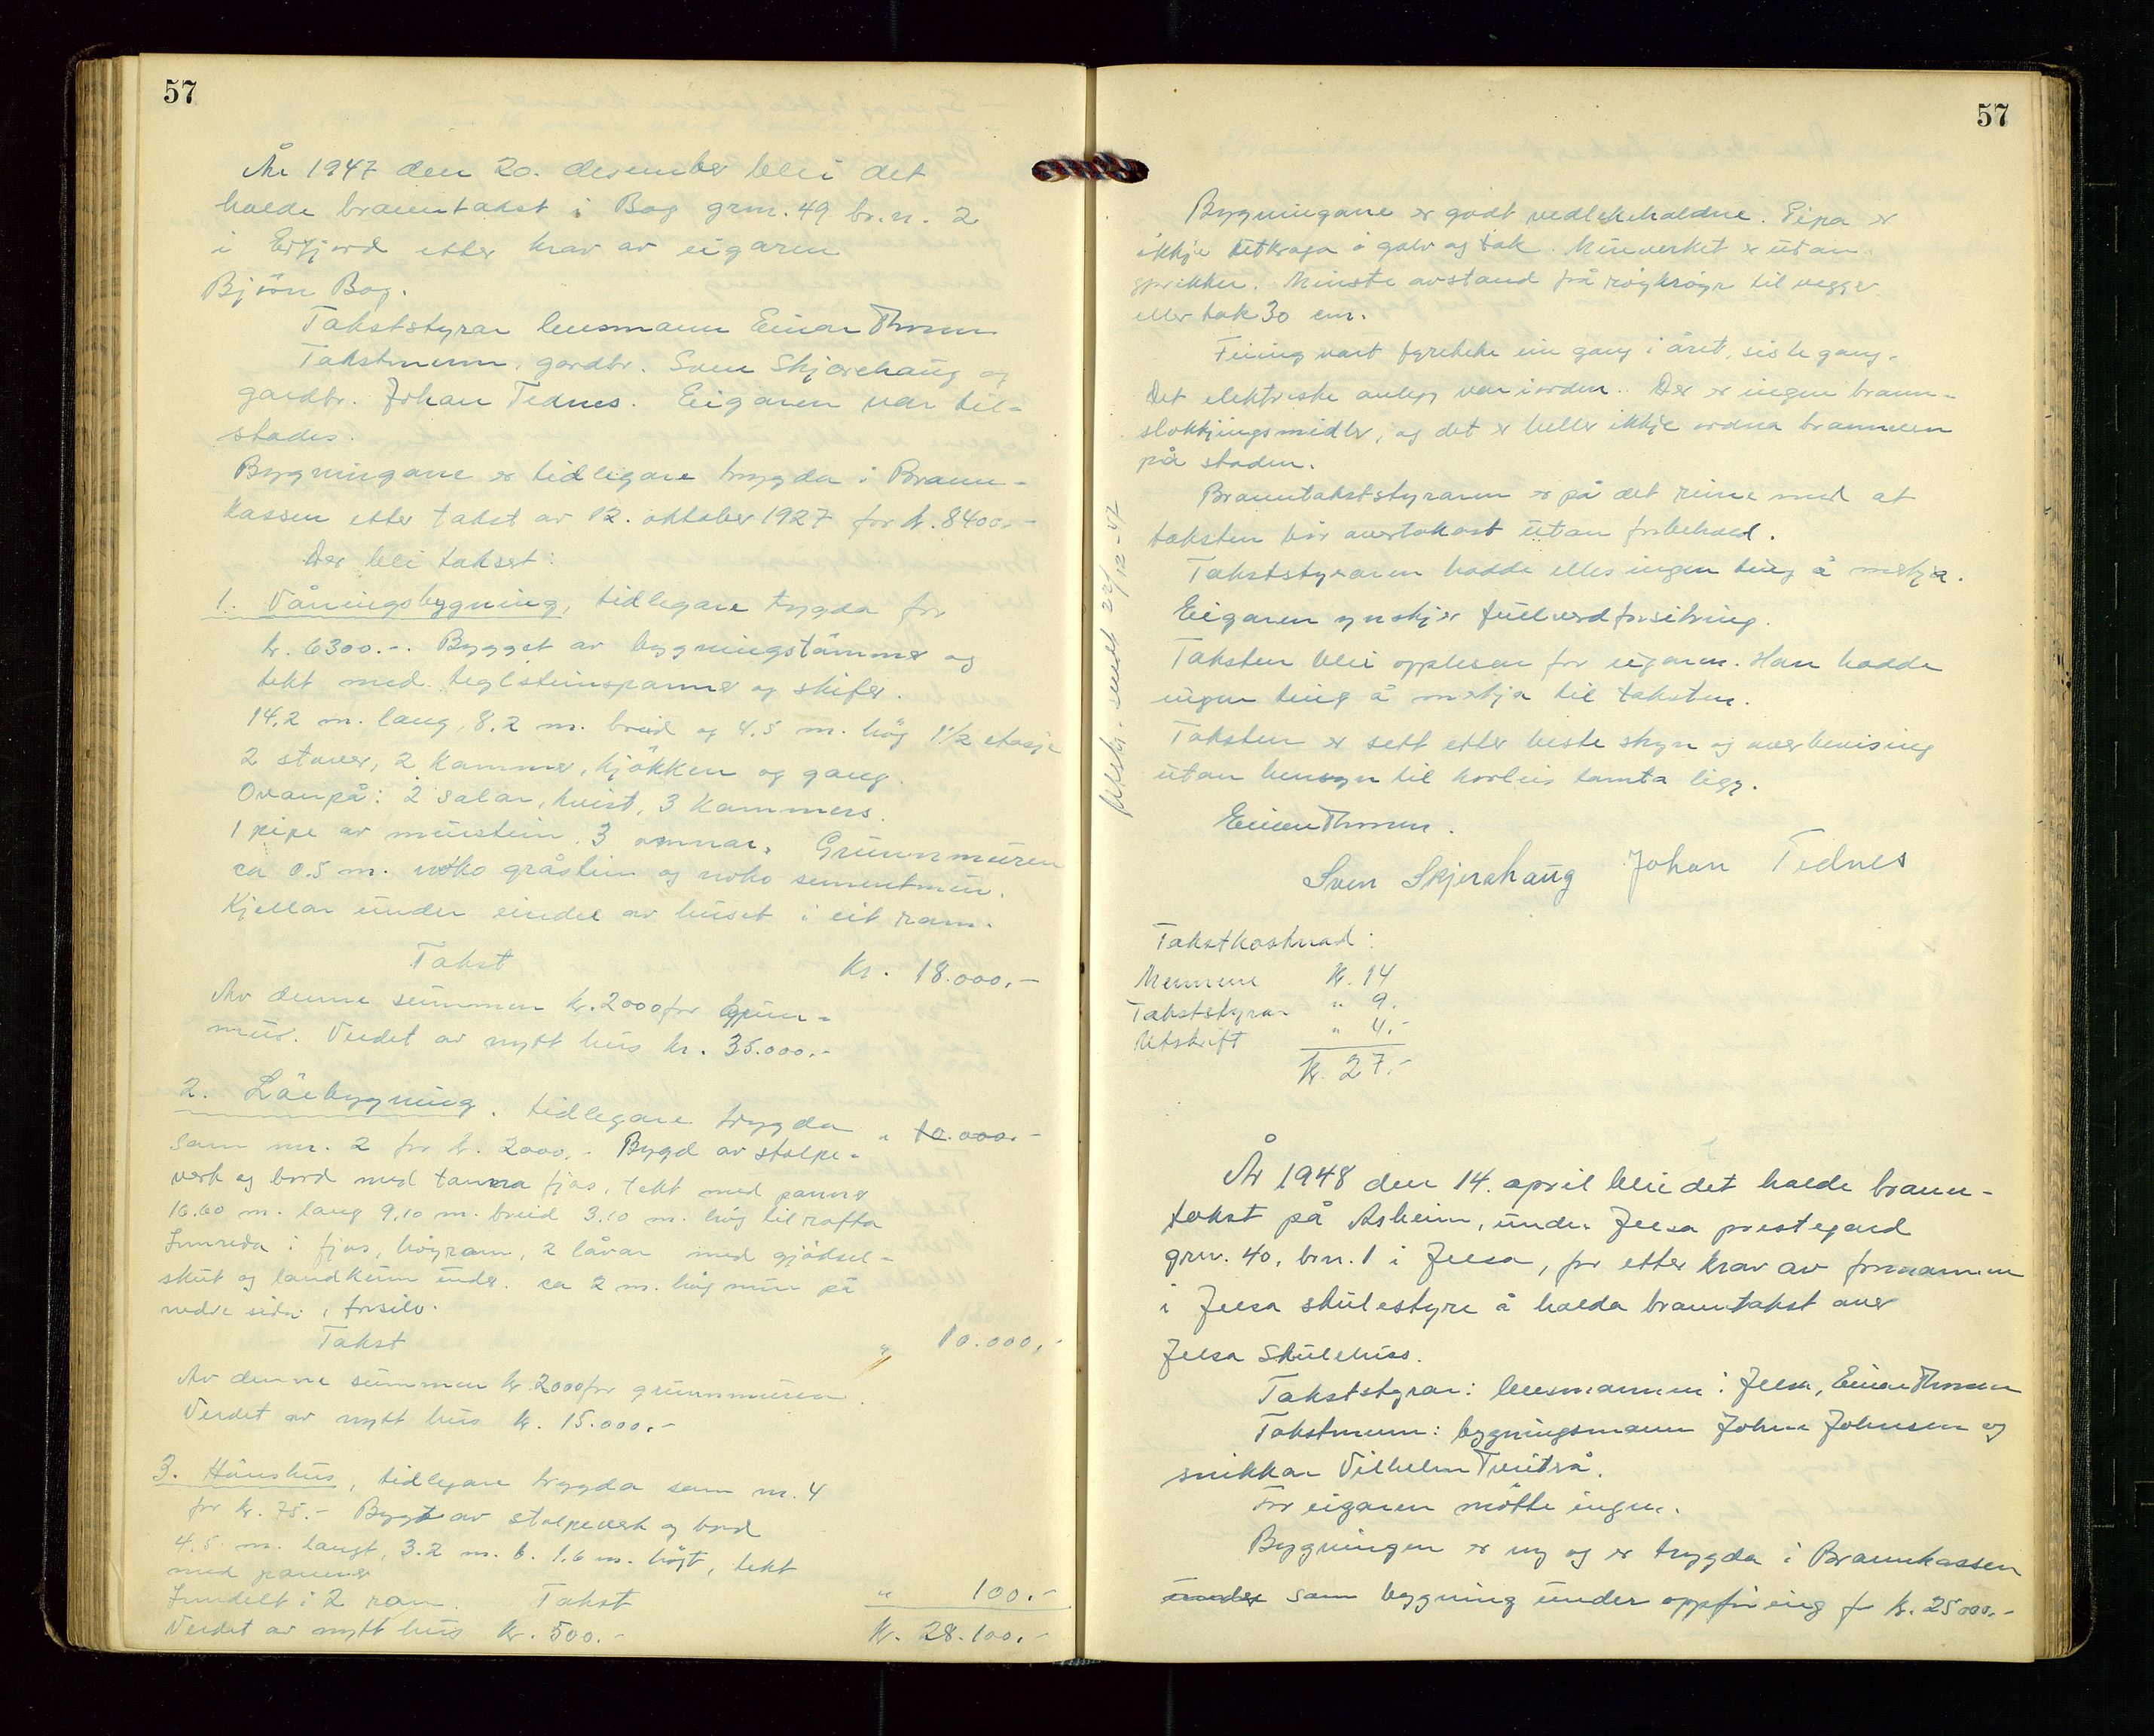 57
År 1947 den 20. desember blei det
halde branntakst i Bog grnr. 49 br.n. 2
i Erfjord etter krav av eigaren
Bjørn Bog.
Takststyrar lensmann Einar Thomsen
Takstmenn, gardbr. Sven Skjærehaug og
gardbr. Johan Tednes. Eigaren var til-
stades.
Bygningane er tidlegare trygda i Brann-
kassen etter takst av 12. oktober 1927 for kr. 8400.-
Der blei takset:
1. Våningsbygning, tidlegare trygda for
kr. 6300.-. Bygget av bygningstømmer og
tekt med teglsteinspanner og skifer.
14,2 m. lang, 8.2 m. breid og 4.5 m. høg 1 1/2 etasje
2 stover, 2 kammer, kjøkken og gang.
Ovanpå: 2 salar, kvist, 3 kammers.
1 pipe av murstein. 3 omnar. Grunnmuren
ca 0.5 m. noko gråstein og noko sementmur.
Kjellar under eindel av huset i eit rom.
Takst Kr. 18.000,-
Av denne summen kr. 2000 for grun-
mur. Verdet av nytt hus kr. 35.000.-
2. Løebygning. tidlegare trygda " 10.000.-
som nr. 2 for kr. 2000.- Bygd av stolpe-
verk og bord med tømra fjøs, tekt med panner
16.60 m. lang 9,10 m. breid 3,10 m. høg til rafta
Innreda i fjøs, høyrom, 2 låvar med gjødsel-
skut og landkum under. ca 2 m. høg mur på
nedre sida, forsilo.
Takst " 10.000,-
Av denne summen kr. 2000 for grunnmuren.
Verdet av nytt hus kr. 15.000.-
3. Hønshus, tidlegare trygda som nr. 4
for kr. 75.- Bygt av stolpeverk og bord
4.5 m. langt, 3.2 m. b. 1.6 m. høgt, tekt
med panner
Inndelt i 2 rom. Takst " 100.-
Verdet av nytt hus kr. 500.- kr. 28.100.-
57
Bygningane er godt vedlikehaldne. Pipa er
ikkje utkraga i golv og tak. Murverket er utan
sprikker. Minste avstand frå røykrøyr til vegger
eller tak 30 cm.
Feiing vart fyreteke ein gang i året, siste gang.
Det elektriske anlegg var i orden. Der er ingen brann-
slokkjingsmidler, og det er heller ikkje ordna brannvern
på staden.
Branntakststyraren er på det reine med at
taksten bør overtakast utan forbehold.
Takststyraren hadde elles ingen ting å merkja.
Eigaren ynskjer fullverdforsikring.
Taksten blei opplesen for eigaren. Han hadde
ingen ting å merkja til taksten.
Taksten er sett etter beste skyn og overbevising
utan hensyn til korleis tomta ligg.
Einar Thomsen.
Sven Skjerahaug Johan Tednes
Utskr. sendt 22/12-47
Takstkostnad:
Mennene kr. 14
Takststyrar " 9.
Utskrift " 4.-
kr. 27.-
År 1948 den 14. april blei det halde brann-
takst på Asheim, under Jelsa prestegard
grnr. 40, brn. 1 i Jelsa, for etter krav av formannen
i Jelsa skulestyre å halda branntakst over
Jelsa Skulehus.
Takststyrar: lensmannen i Jelsa, Einar Thomsen
Takstmenn: bygningsmann Johan Johnsen og
snikkar Vilhelm Tveitrå.
For eigaren møtte ingen.
Bygningen er ny og er trygda i Brannkassen
under som bygning under oppføring for kr. 25000.-